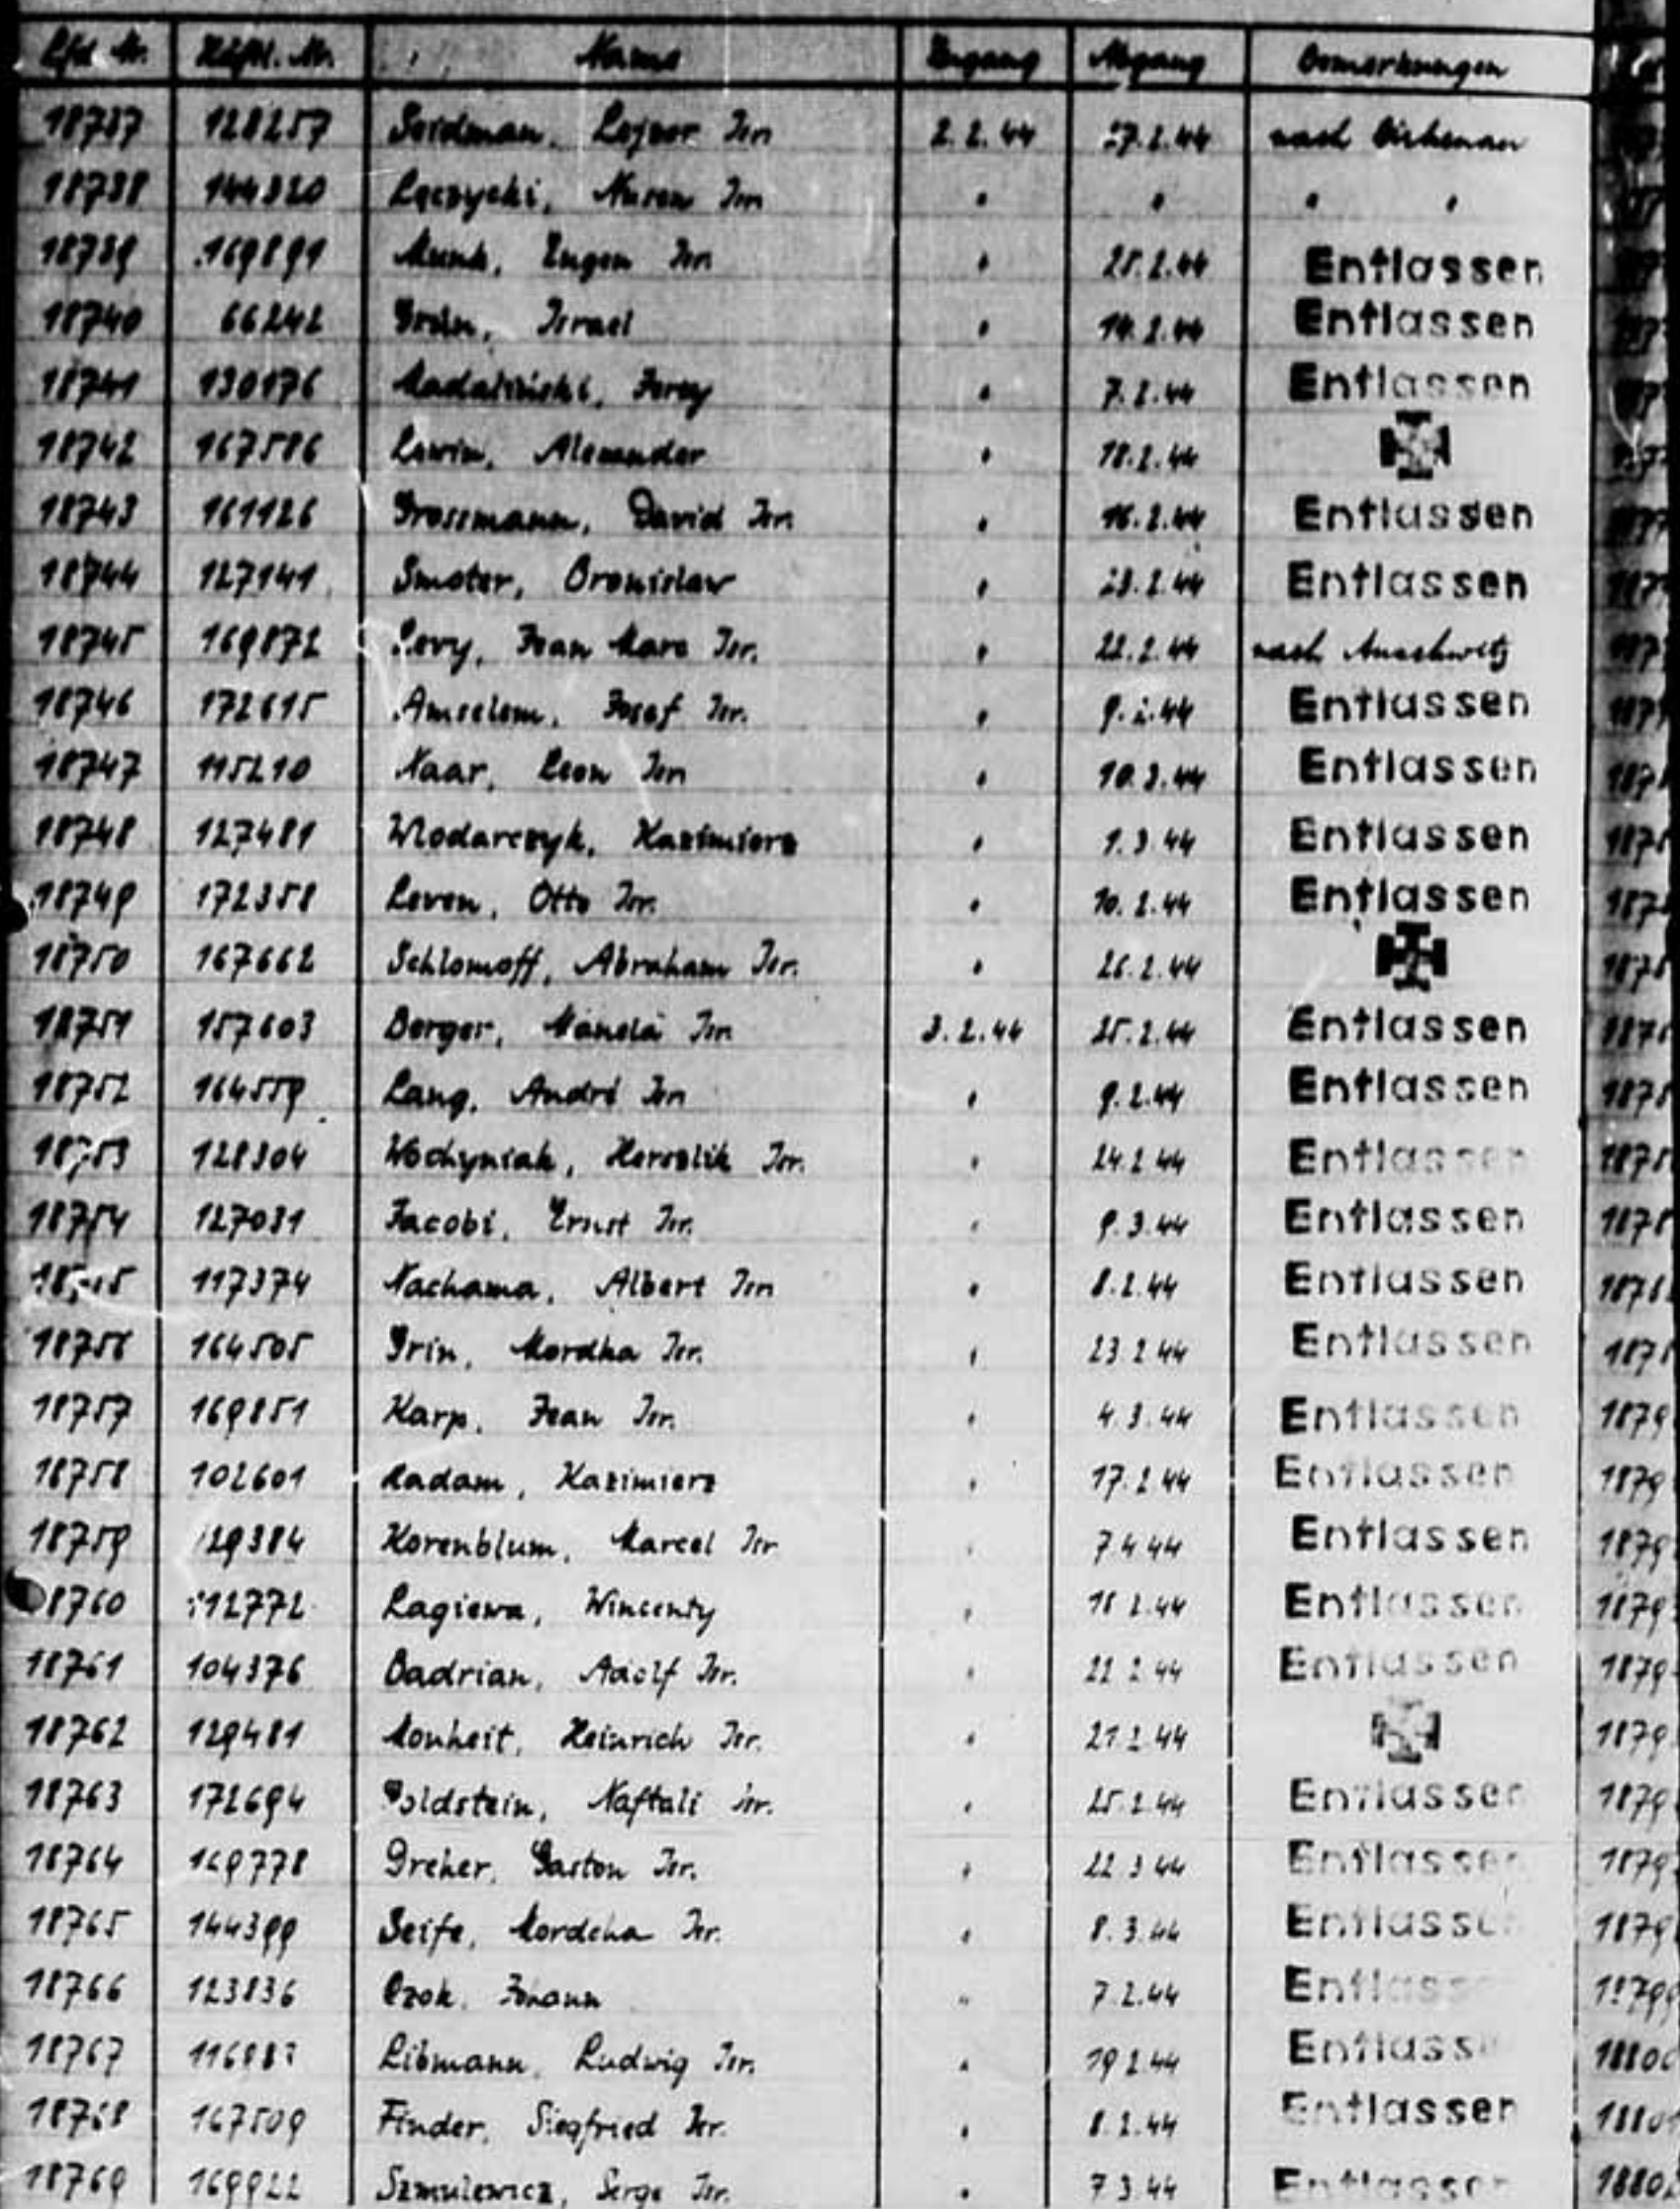 Lfd. Nr. Häftl. Nr. Name Zugang Abgang Bemerkungen
18737 128257 Seidman, Lejzor Isr. 2.2.44 27.2.44 nach Birkenau
18738 144320 Łęczycki, Isr. " " " "
18739 169891 Munk, Eugen Isr. " 25.2.44 Entlassen
18740 66242 Grün, Israel " 14.2.44 Entlassen
18741 130176 Jerzy " 7.2.44 Entlassen
18742 167586 Lewin, Alexander " 18.2.44
18743 161126 Grossmann, David Isr. " 16.2.44 Entlassen
18744 127141 Smoter, Bronislaw " 23.2.44 Entlassen
18745 169872 Levy, Jean Marc Isr. " 22.2.44 nach Auschwitz
18746 172615 Amselem, Josef Isr. " 9.2.44 Entlassen
18747 115210 Naar, Leon Isr. " 10.3.44 Entlassen
18748 127481 Wlodarczyk, Kazimierz " 1.3.44 Entlassen
18749 172358 Leven, Otto Isr. " 10.2.44 Entlassen
18750 167662 Schlomoff, Abraham Isr. " 26.2.44
18751 157603 Berger, Isr. 3.2.44 25.2.44 Entlassen
18752 164559 Lang, André Isr. " 9.2.44 Entlassen
18753 128304 Isr. " 24.2.44 Entlassen
18754 127031 Jacobi, Ernst Isr. " 9.3.44 Entlassen
117374 Nachama, Albert Isr. " 8.2.44 Entlassen
18756 164505 Grin, Mordka Isr. " 23.2.44 Entlassen
18757 169851 Karp, Jean Isr. " 4.3.44 Entlassen
18758 102601 Kazimierz " 17.2.44 Entlassen
18759 129384 Korenblum, Marcel Isr. " 7.4.44 Entlassen
18760 112772 Lagiewa, Wincenty " 18.2.44 Entlassen
18761 104376 Badrian, Adolf Isr. " 22.2.44 Entlassen
18762 129481 Monheit, Heinrich Isr. " 21.2.44
18763 172694 Goldstein, Naftali Isr. " 25.2.44 Entlassen
18764 169778 Dreher, Gaston Isr. " 22.3.44 Entlassen
18765 144399 Seife, Mordcha Isr. " 8.3.44 Entlassen
18766 123836 Czok, Johann " 7.2.44 Entlassen
18767 Libmann, Ludwig Isr. " 19.2.44 Entlassen
18768 167509 Finder, Siegfried Isr. " 8.2.44 Entlassen
18769 169922 Szmulewicz, Serge Isr. " 7.3.44 Entlassen